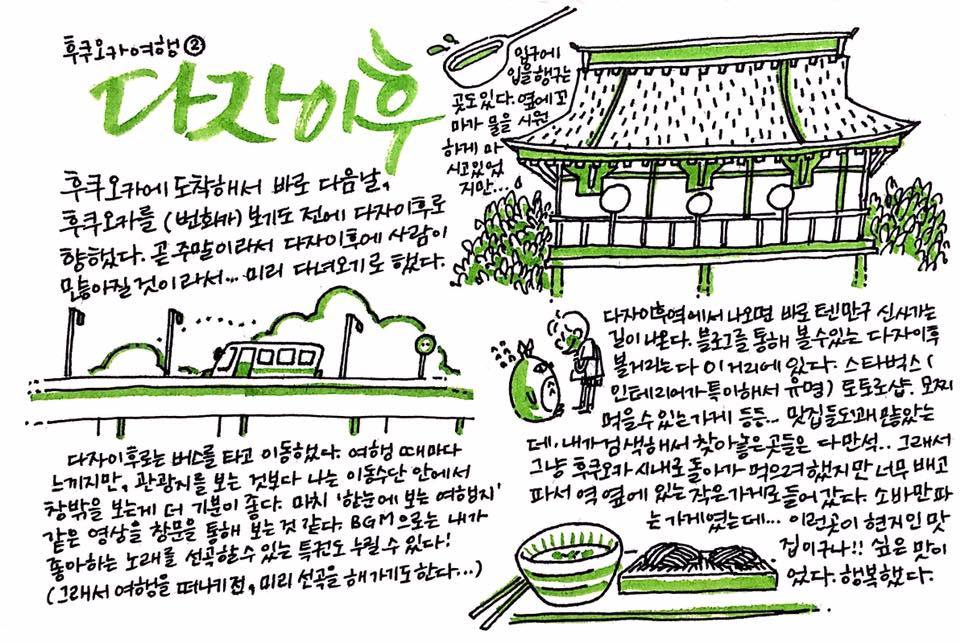 후쿠오카여행 ②
다자이후
후쿠오카에 도착해서 바로 다음날,
후쿠오카를 (번화가) 보기도 전에 다자이후로
향했다. 곧 주말이라서 다자이후에 사람이
많아질 것이라서... 미리 다녀오기로 했다.
입구에
입을 헹구는
곳도 있다. 옆에 꼬
마가 물을 시원
하게 마
시고 있었
지만...
다자이후로는 버스를 타고 이동했다. 여행 때마다
느끼지만, 관광지를 보는 것보다 나는 이동수단 안에서
창밖을 보는게 더 기분이 좋다. 마치 '한눈에 보는 여행지'
같은 영상을 창문을 통해 보는 것 같다. BGM으로는 내가
좋아하는 노래를 선곡할 수 있는 특권도 누릴 수 있다!
(그래서 여행을 떠나기 전, 미리 선곡을 해 가기도 한다...)
다자이후역에서 나오면 바로 텐만구 신사가는
길이 나온다. 블로그를 통해 볼 수 있는 다자이후
볼거리는 다 이 거리에 있다. 스타벅스(
인테리어가 특이해서 유명) 토토로샵. 모찌
먹을 수 있는 가게 등등... 맛집들도 꽤 많았는
데, 내가 검색해서 찾아놓은 곳들은 다 만석.. 그래서
그냥 후쿠오카 시내로 돌아가 먹으려 했지만 너무 배고
파서 역 옆에 있는 작은가게로 들어 갔다. 소바만 파
는 가게였는데... 이런곳이 현지인 맛
집이구나!! 싶은 맛이
었다. 행복했다.